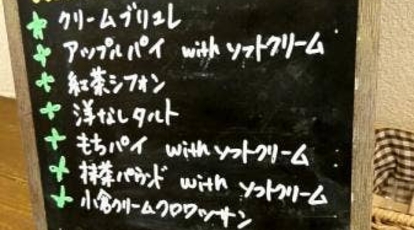 クリームブリュレ
アップルパイ with ソフトクリーム
紅茶シフォン
洋なしタルト
もちパイ with ソフトクリーム
抹茶パウンド with ソフトクリーム
小倉クリームクロワッサン